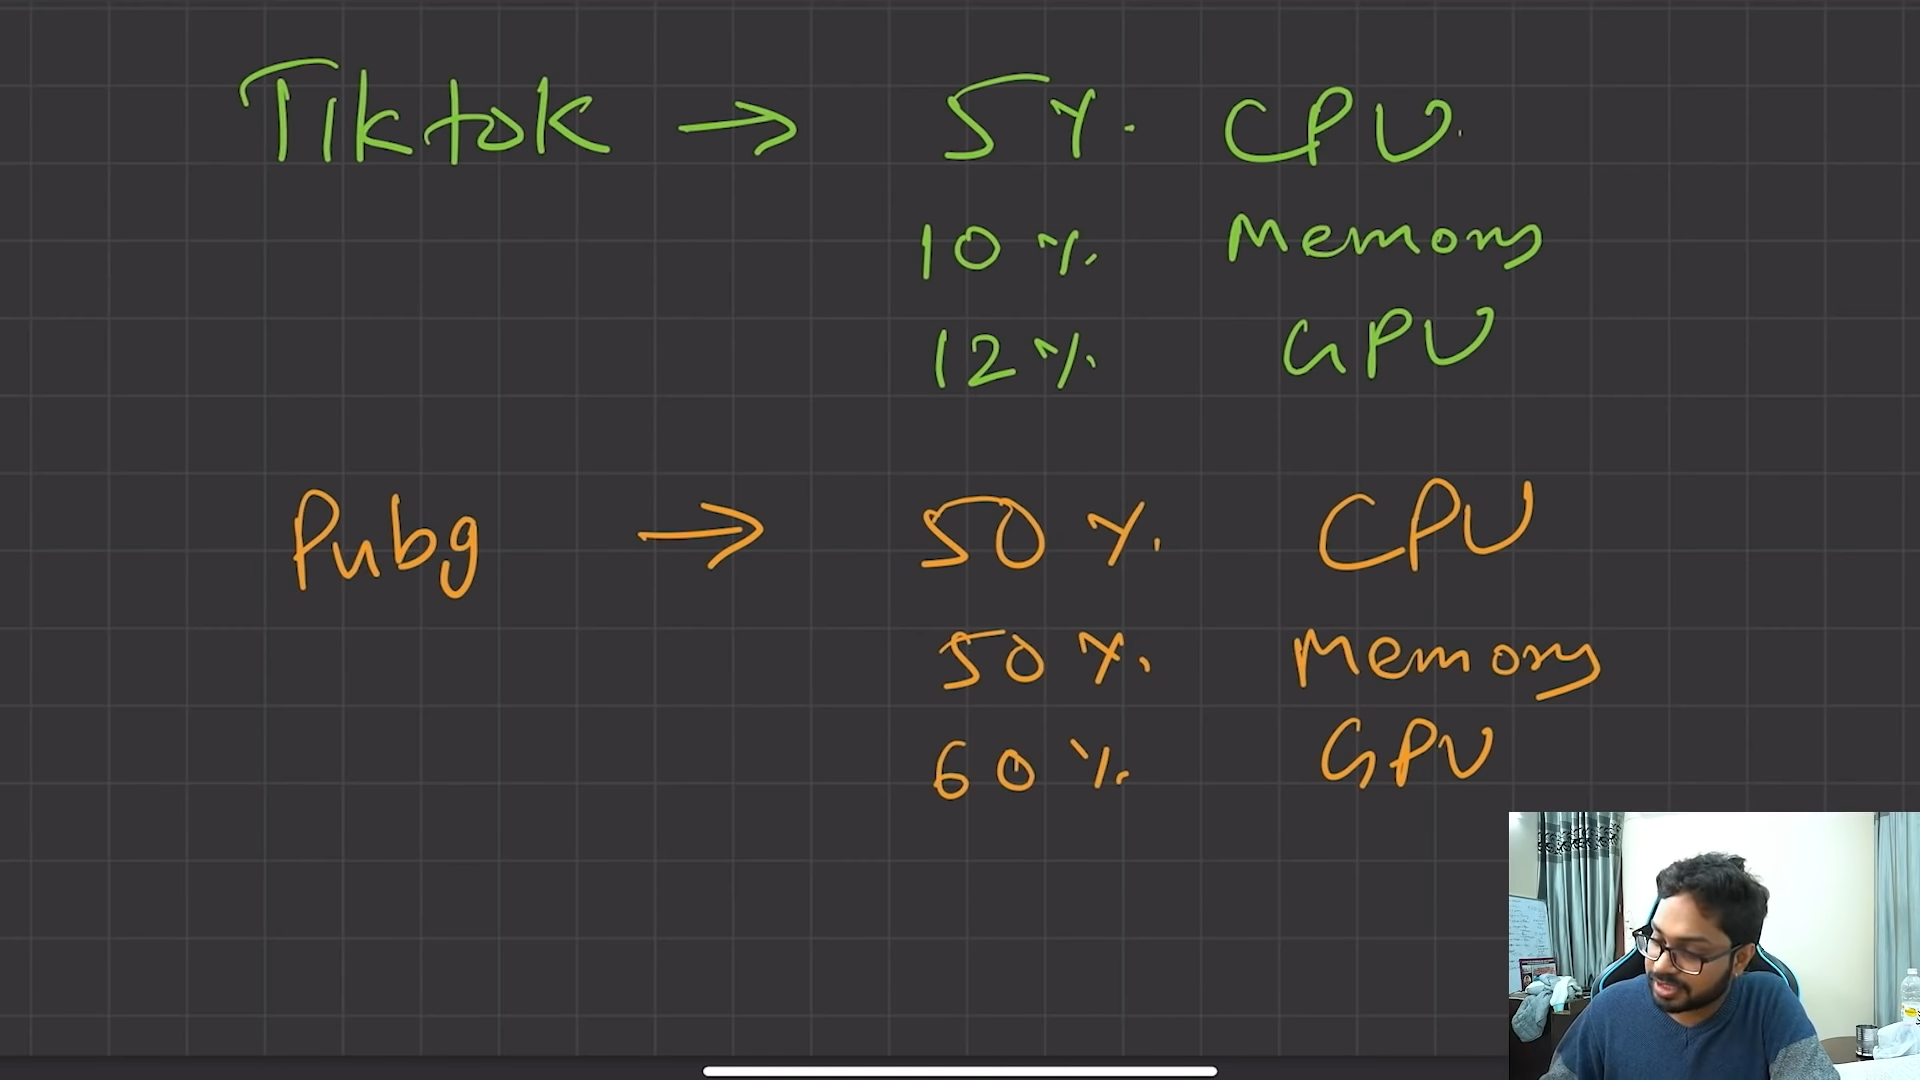 Tiktok → 5% CPU.
10% Memory
12% GPU
Pubg → 50% CPU
50% Memory
60% GPU